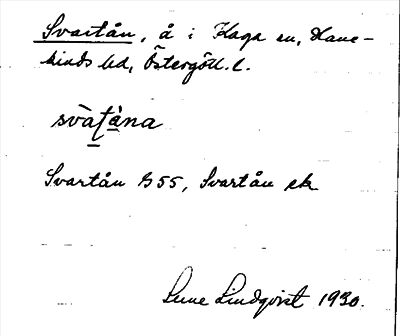 Svartån, å i Kaga sn, Hane-
kinds hd, Östergötl. l.
svàṭå̀na
Svartån G 55, Svartån ek
Sune Lindqvist 1930.